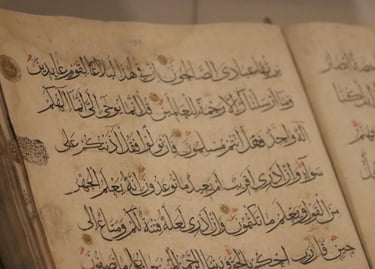 يرثها عبادي الصالحون ان في هذا لبلاغا لقوم عابدين
وما ارسلناك الا رحمة للعالمين قل انما يوحى الي انما الهكم
اله واحد فهل انتم مسلمون فان تولوا فقل اذنتكم على
سواء وان ادري اقريب ام بعيد ما توعدون انه يعلم الجهر
من القول ويعلم ما تكتمون وان ادري لعله فتنة لكم ومتاع الى
حين قال رب احكم بالحق وربنا على ما تصفون